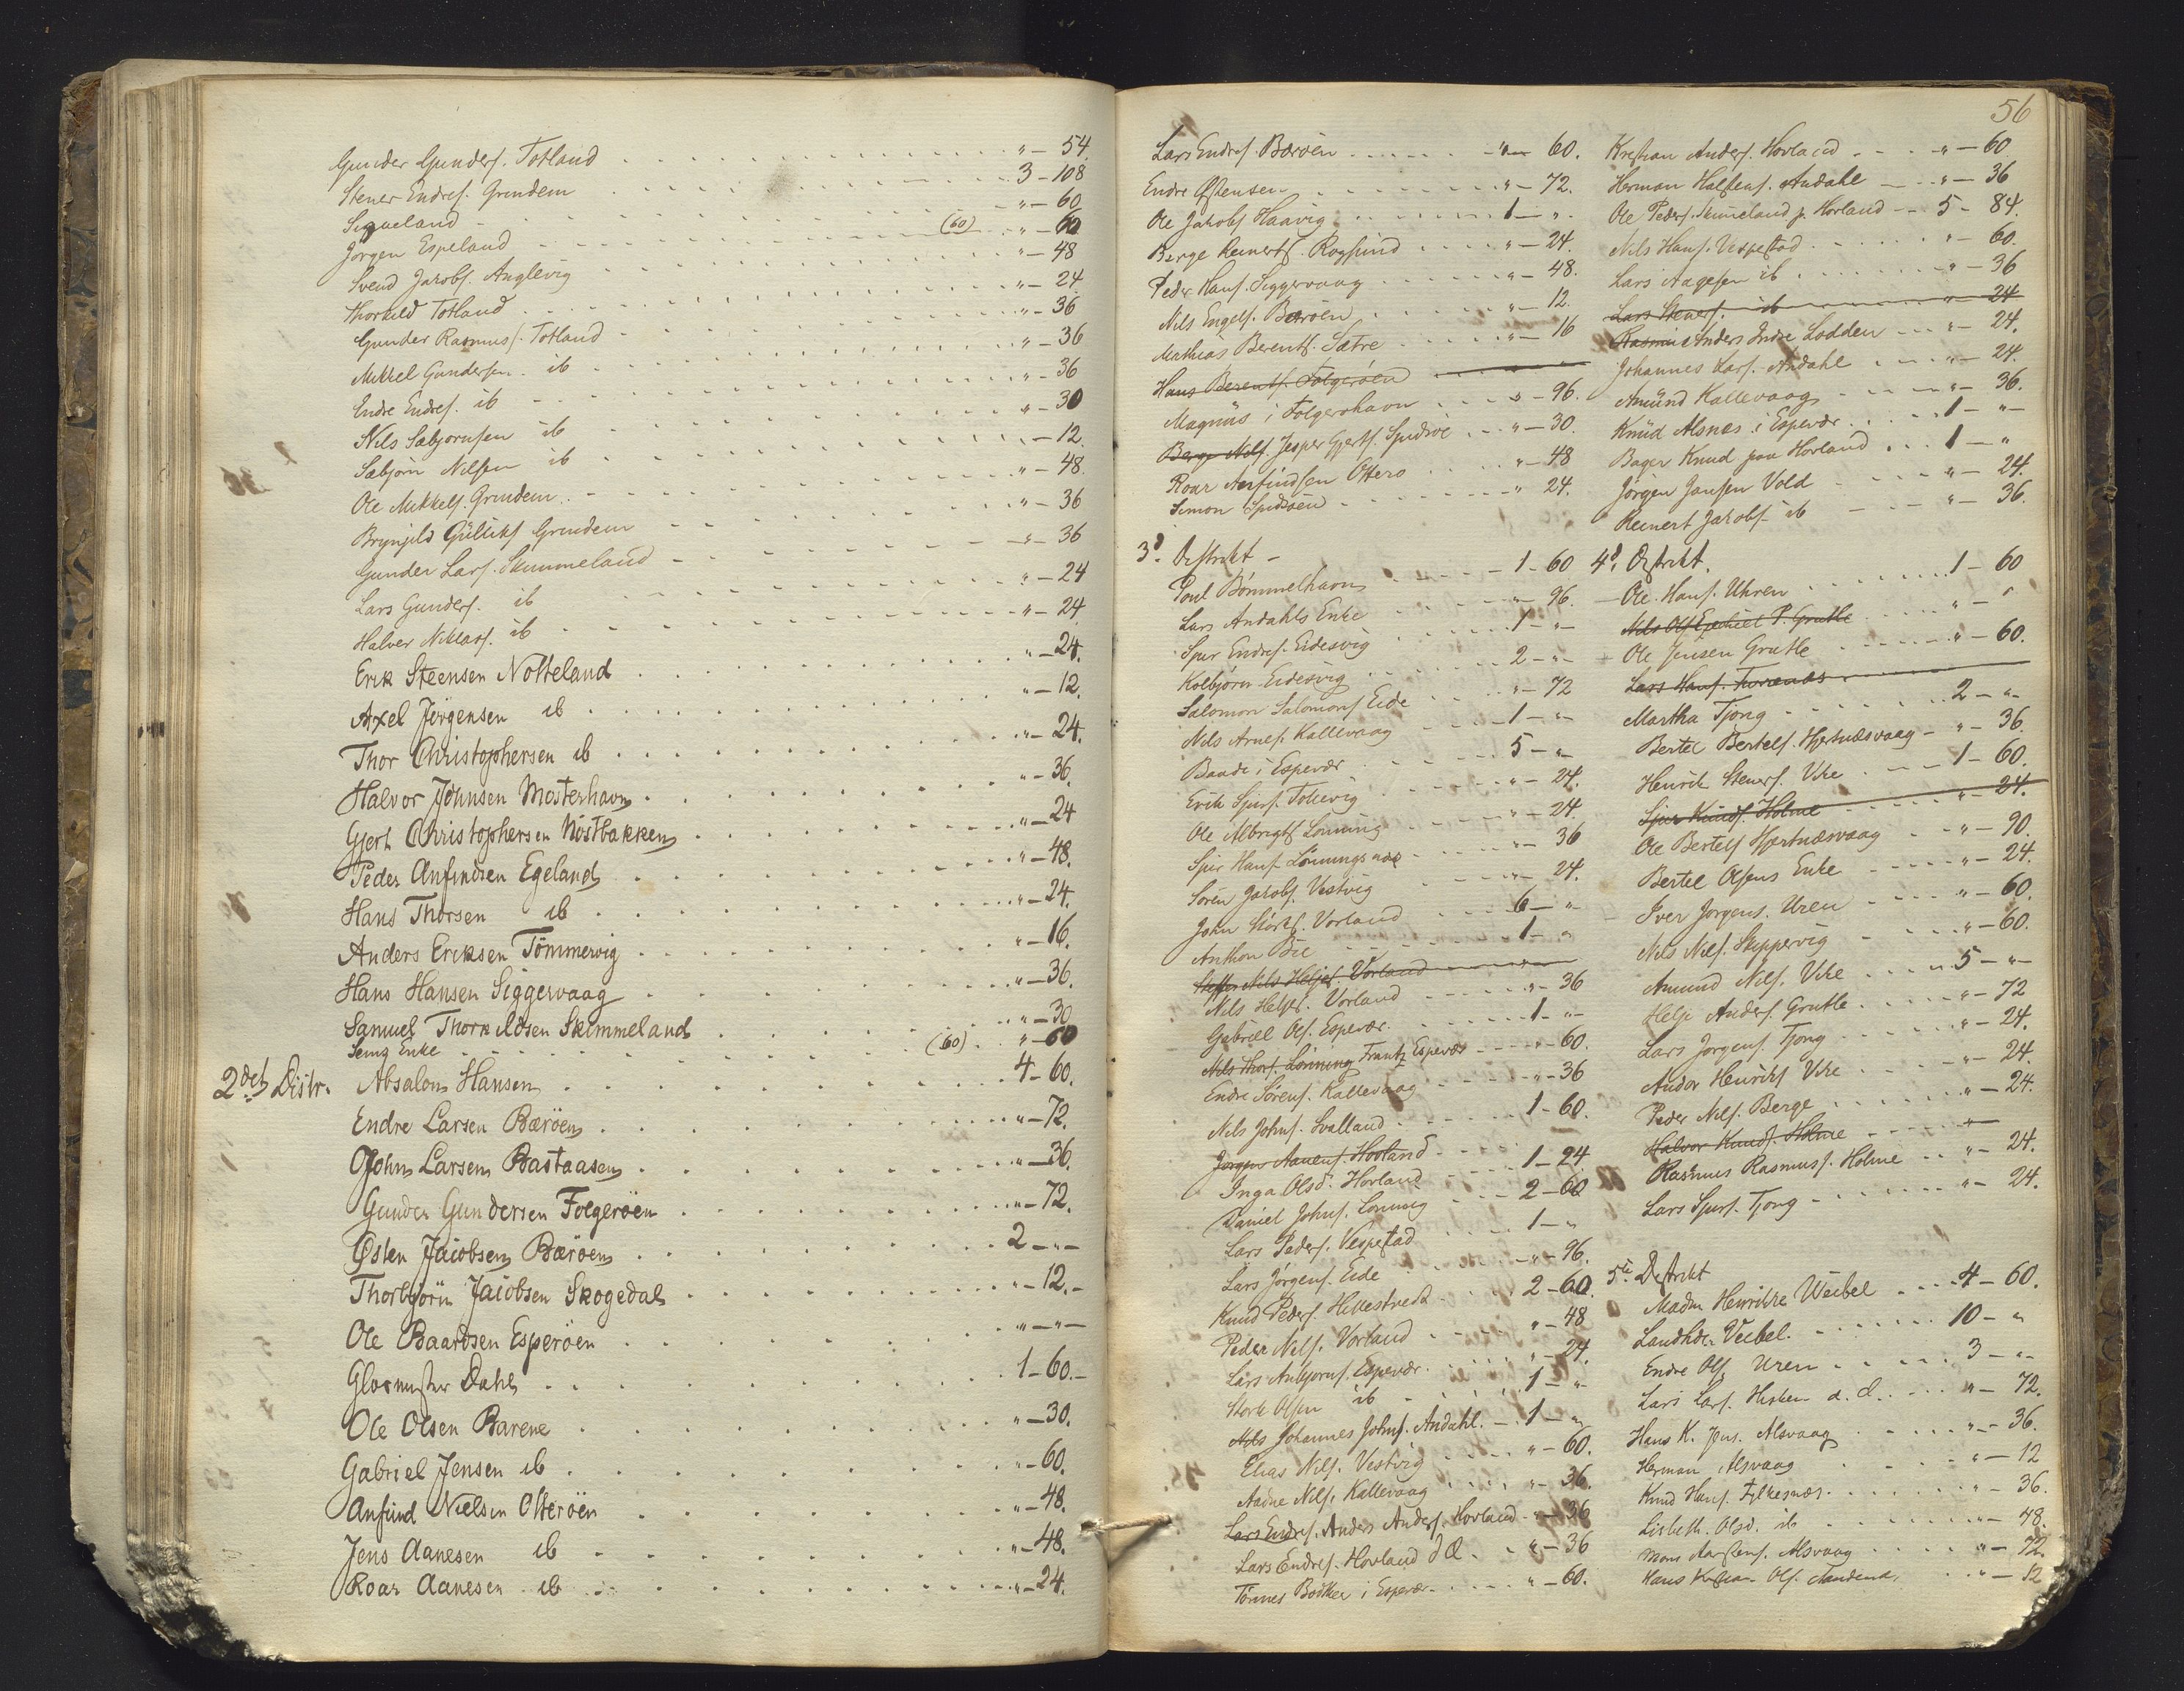 Gunder Gunders. Totland . . . " — 54.
Stener Endres. Grindem . . . 3 — 108
Siqveland . . . " — 60
Jørgen Espeland . . . (60) . " — 60
Svend Jakobs. Anglevig . . . " — 48
Thorkild Totland . . . " — 24
Gunder Rasmuss. Totland . . . " — 36
Mikkel Gundersen ib . . . " — 36
Endre Endres. ib . . . " — 36
Nils Sæbjørnsen ib . . . " — 30
Sæbjørn Nilsen ib . . . " — 12.
Ole Mikkels. Grindem . . . " — 48.
Brynjild Gulliks Grindem . . . " — 36
Gunder Lars. Skimmeland . . . " — 36
Lars Gunders. ib . . . " — 24
Halver Niklas. ib . . . " — 24.
Erik Steensen Notteland . . . " — 24.
Axel Jørgensen ib . . . " — 12.
Thor Christophersen ib . . . " — 24.
Halvor Johnsen Mosterhavn . . . " — 36.
Gjert Christophersen Nøstbakken . . . " — 24
Peder Anfindsen Egeland . . . " — 48.
Hans Thorsen ib . . . " — 24.
Anders Eriksen Tømmervig . . . " — 16.
Hans Hansen Siggervaag . . . " — 36.
Samuel Thorkildsen Skimmeland . . . " — 30
Semg Enke . . . (60) . . " — 60
2det Distr. Absalon Hansen . . . 4 — 60.
Endre Larsen Bærøen . . . " — 72.
John Larsen Bastaasen . . . " — 36.
Gunder Gundersen Folgerøen . . . " — 72.
Østen Jacobsen Bærøen . . . 2 — " —
Thorbjørn Jacobsen Skogedal . . . " — 12. —
Ole Baardsen Esperøen . . . " — " —
Glasmester Dahl . . . 1 — 60. —
Ole Olsen Barene . . . " — 30.
Gabriel Jensen ib . . . " — 60.
Anfind Nielsen Otterøen . . . " — 48.
Jens Aanesen ib . . . " — 48.
Roar Aanesen ib . . . " — 24.
56
Lars Endres. Bærøen . . . " — 60.
Endre Østensen . . . " — 72.
Ole Jakobs Haavig . . . 1 — " .
Børge Reinerts. Rogsund . . . " — 24.
Peder Hans. Siggervaag . . . " — 48.
Nils Engels. Bærøen . . . " — 12.
Mathias Berents. Sætre . . . " — 16
Hans Berents. Folgerøen
Magnus i Folgerøhavn . . . " — 96.
Børge Nils. Jesper Gjerts. Spidsøe . . . " — 30.
Roar Anfindsen Otterø . . . " — 48
Simon Spidsøen . . . " 24.
3d. Distrikt —
Poul Bømmelhavn . . . 1 — 60
Lars Andahls Enke . . . " — 96.
Sjur Endres. Eidesvig . . . 1 — " —
Kolbjørn Eidesvig . . . 2 — " —
Salomon Salomons Eide . . . " — 72
Nils Arnes. Kallevaag . . . 1 — " —
Baade i Espevær . . . 5 — " —
Erik Sjurs. Tollevig . . . " — 24.
Ole Albregts Lønning . . . " — 24.
Sjur Hans. Lønningsnæs . . . " — 36
Søren Jakobs. Vestvig . . . " — 24.
John Størks. Vorland . . . 6 — "
Anthon Bie . . . 1 — "
Nils Heljes. Vorland
Nils Heljes. Vorland . . . " — 36
Gabriel Ols. Espevær . . . 1 — " —
Nils Thors. Lønning Frantz Espevær . . . " — 60.
Endre Sørens. Kallevaag . . . " — 36
Nils Johns. Svalland . . . 1 — 60.
Jørgen Aanens. Hovland
Inga Olsd. Hovland . . . 1 — 24
Daniel Johns. Lønning . . . 2 — 60
Lars Peders. Vespestad . . . 1 — "
Lars Jørgens. Eide . . . " — 96.
Knud Peders. Hillestveit . . . 2 — 60.
Peder Nils. Vorland . . . " — 48
Lars Anbjørns. Espevær . . . " — 24.
Størk Olsen ib . . . 1 — " —
Nils Johannes Johns. Andahl . . . 1 — "
Elias Nils. Vestvig . . . " — 60.
Aadne Nils. Kallevaag . . . " — 36.
Lars Endres. Anders Anders. Hovland . " — 36
Lars Endres. Hovland d Æ. . . " — 36
Tønnes Bødker i Espevær . . . " — 60.
Kristian Anders. Hovland . . . " — 60
Herman Halstens. Andahl . . . " — 36
Ole Peders. Skimeland p. Hovland . . . 5 — 84.
Nils Hans. Vespestad . . . " — 60.
Lars Aagesen ib . . . " — 36
Lars Steners. ib . . . " — 24
Rasmus Anders Indre Lodden . . . " — 24.
Johannes Lars. Andahl . . . " — 24.
Amund Kallevaag . . . " — 36.
Knud Alsnes i Espevær . . . 1 — " —
Bager Knud paa Hovland . . . 1 — "
Jørgen Jansen Vold . . . " — 24.
Reinert Jakobs. ib . . . " — 36.
4d. Distrikt.
Ole Hans. Uhren . . . 1 — 60
Nils Ols Ezechiel P. Grutle . . . " — "
Ole Jensen Grutle . . . " — 60.
Lars Hans. Turænæs
Martha Tjong . . . 2 — " —
Bertel Bertels. Hjertnæsvaag . . . " — 36.
Henrik Steners. Vihe . . . 1 — 60.
Sjur Knuds. Holme . . . " — 24.
Ole Bertels Hjertnæsvaag . . . " — 90.
Bertel Olsens Enke . . . " — 24.
Iver Jørgens. Uren . . . " — 60.
Nils Nils. Skippervig . . . " — 60.
Amund Nils. Vihe . . . 5 — " —
Helje Anders. Grutle . . . " — 72
Lars Jørgens. Tjong . . . " — 24.
Andor Henriks Vihe . . . " — 24.
Peder Nils. Berge . . . " — 24.
Halvor Knuds. Holme
Rasmus Rasmuss. Holme . . . " — 24.
Lars Sjurs. Tjong . . . " — 24.
5te Distrikt
Madm Henrikke Weibel . . . 4 — 60.
Landhdr. Veibel . . . 10 — "
Endre Ols. Uren . . . 3 — " —
Lars Lars. Hisken d. Æ. . . . " — 72.
Hans K. Jens. Alsvaag . . . " — 36.
Herman Alsvaag . . . " — 12
Knud Hans. Fylkesnæs . . . " — 36.
Lisbeth Olsd. ib . . . " — 48.
Mons Alsvaag . . . " — 72.
Hans Kristian Ols. . . . " — 12